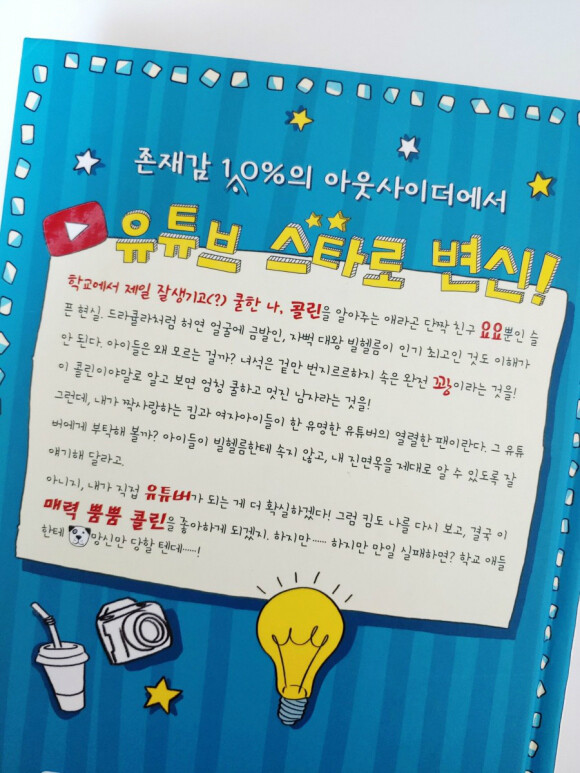 존재감 1.0%의 아웃사이더에서
유튜브 스타로 변신!
학교에서 제일 잘생기고(?) 쿨한 나, 콜린을 알아주는 애라곤 단짝 친구 요요뿐인 슬
픈 현실. 드라큘라처럼 허연 얼굴에 금발인, 자뻑 대왕 빌헬름이 인기 최고인 것도 이해가
안 된다. 아이들은 왜 모르는 걸까? 녀석은 겉만 번지르르하지 속은 완전 꽝이라는 것을!
이 콜린이야말로 알고 보면 엄청 쿨하고 멋진 남자라는 것을!
그런데, 내가 짝사랑하는 킴과 여자아이들이 한 유명한 유튜버의 열렬한 팬이란다. 그 유튜
버에게 부탁해 볼까? 아이들이 빌헬름한테 속지 않고, 내 진면목을 제대로 알 수 있도록 잘
얘기해 달라고.
아니지, 내가 직접 유튜버가 되는 게 더 확실하겠다! 그럼 킴도 나를 다시 보고, 결국 이
매력 뿜뿜 콜린을 좋아하게 되겠지. 하지만…… 하지만 만일 실패하면? 학교 애들
한테 망신만 당할 텐데……!